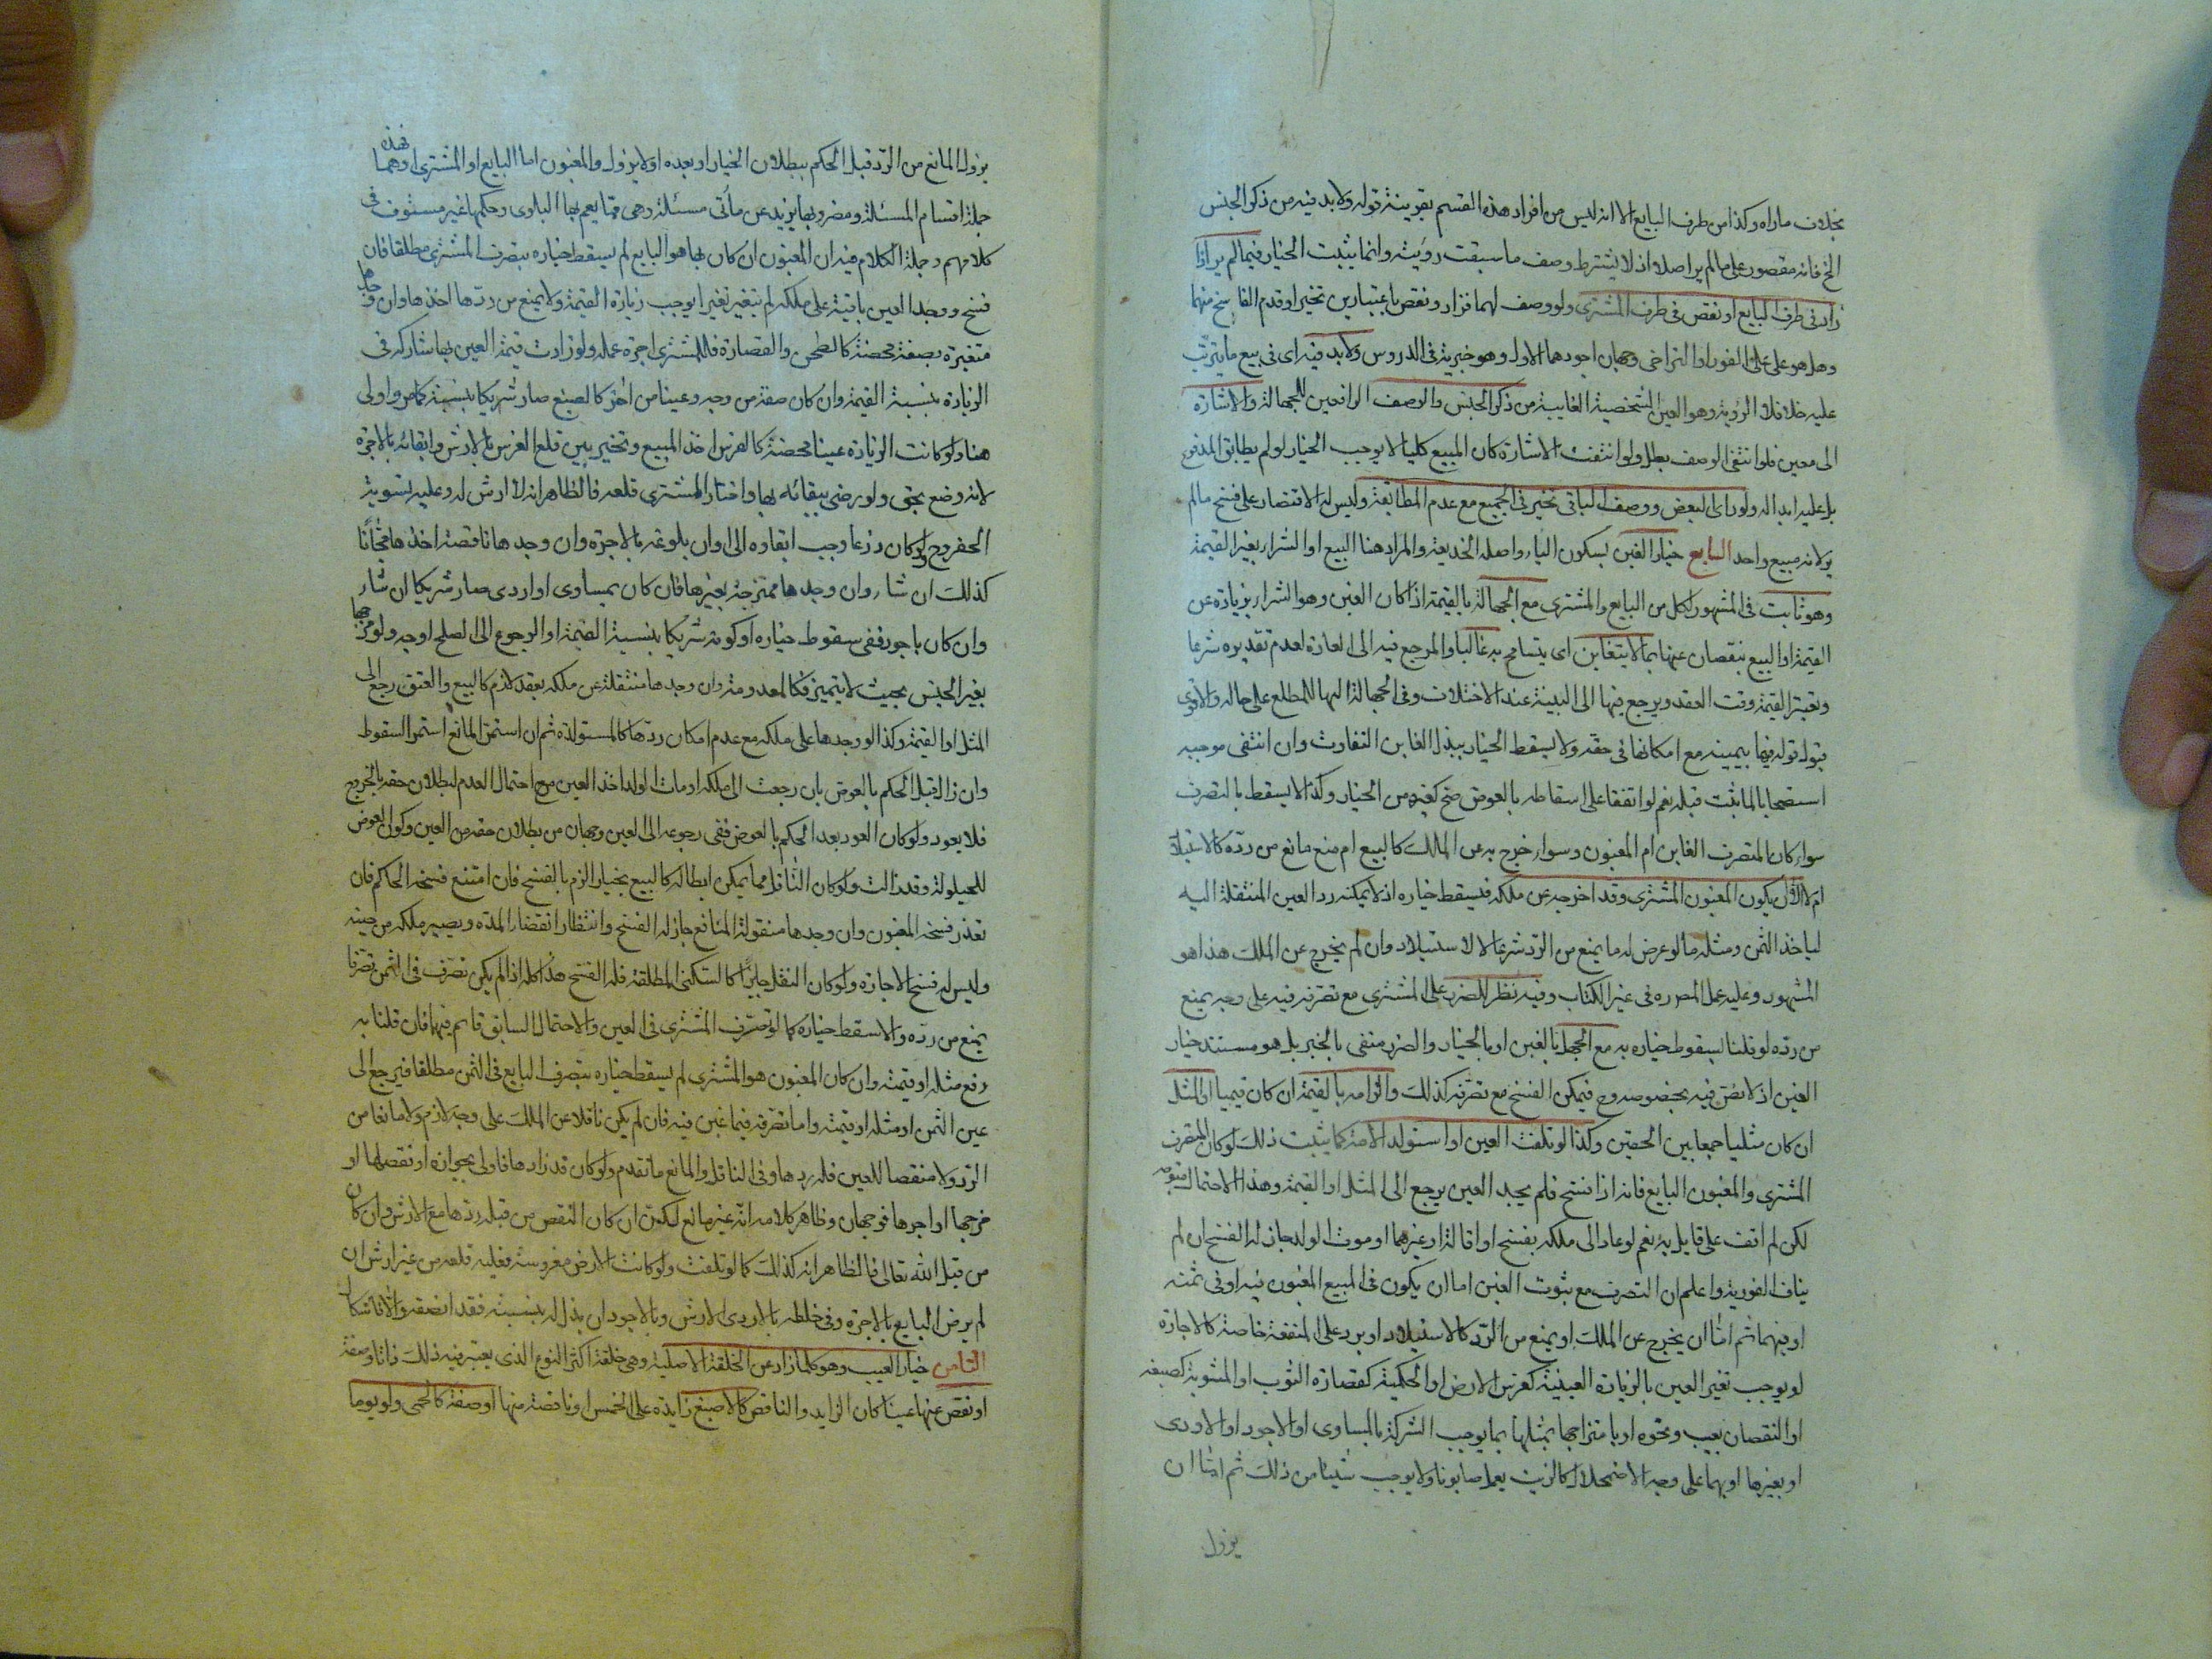 بخلاف ما راه وكذا من طرف البايع الا انه ليس من افراد هذا القسم بقرينة قوله ولا بد فيه من ذكر الجنس
الخ فانه مقصور على ما لم ير اصلا اذ لا يشترط وصف ما سبقت رؤيته وانما يثبت الخيار فيما لم ير اذا
زاد فى طرف البايع او نقص فى طرف المشترى ولو وصف لهما فزاد ونقص باعتبارين تخير او قدم الفاسخ منهما
وهل هو على الفور او التراخى وجهان اجودهما الاول وهو خيرته فى الدروس ولا بد فيه اى فى بيع ما يترتب
عليه خلاف الرؤية وهو العين الشخصية الغايبة من ذكر الجنس والوصف الرافعين للجهالة والاشارة
الى معين فلو انتفى الوصف بطل ولو انتفت الاشارة كان المبيع كليا لا يوجب الخيار لو لم يطابق المدفوع
بل عليه ابداله ولو راى البعض ووصف الباقى تخير فى الجميع مع عدم المطابقة وليس له الاقتصار على فسخ ما لم
ير لانه مبيع واحد السابع خيار الغبن بسكون الباء واصله الخديعة والمراد هنا البيع او الشراء بغير القيمة
وهو ثابت فى المشهور لكل من البايع والمشترى مع الجهالة بالقيمة اذا كان الغبن وهو الشراء بزيادة عن
القيمة او البيع بنقصان عنها بما لا يتغابن اى يتسامح به غالبا والمرجع فيه الى العادة لعدم تقديره شرعا
وتعتبر القيمة وقت العقد ويرجع فيها الى البينة عند الاختلاف وفى الجهالة اليها للمطلع على حاله والاقوى
قبول قوله فيها بيمينه مع امكانها فى حقه ولا يسقط الخيار ببذل الغابن التفاوت وان انتفى موجبه
استصحابا لما ثبت قبله نعم لو اتفقا على اسقاطه بالعوض صح كغيره من الخيار وكذا لا يسقط بالتصرف
سواء كان المتصرف الغابن ام المغبون وسواء خرج به عن الملك كالبيع ام منع مانع من رده كالاستيلاد
ام لا الا ان يكون المغبون المشترى وقد اخرجه عن ملكه فيسقط خياره اذ لا يمكنه رد العين المنتقلة اليه
لياخذ الثمن ومثله ما لو عرض له ما يمنع من الرد شرعا كالاستيلاد وان لم يخرج عن الملك هذا هو
المشهور وعليه عمل المصره فى غير الكتاب وفيه نظر للضرر على المشترى مع تصرفه فيه على وجه يمنع
من رده لو قلنا بسقوط خياره به مع الجهل بالغبن او بالخيار والضرر منفى بالخبر بل هو مستند خيار
الغبن اذ لا نص فيه بخصوصه وح فيمكن الفسخ مع تصرفه كذلك والزامه بالقيمة ان كان قيميا او المثل
ان كان مثليا جمعا بين الحقين وكذا لو تلفت العين او استولد الامة كما يثبت ذلك لو كان المتصرف
المشترى والمغبون البايع فانه اذا فسخ فلم يجد العين يرجع الى المثل او القيمة وهذا الاحتمال متوجه
لكن لم اقف على قايل به نعم لو عاد الى ملكه بفسخ او اقالة او غيرهما او موت الولد جاز له الفسخ ان لم
يناف الفورية واعلم ان التصرف مع ثبوت الغبن اما ان يكون فى المبيع المغبون فيه او فى ثمنه
او فيهما ثم اما ان يخرج عن الملك او يمنع من الرد كالاستيلاد او يرد على المنفعة خاصة كالاجارة
او يوجب تغير العين بالزيادة العينية كغرس الارض او الحكمية كقصارة الثوب او المشوبة كصبغه
او النقصان بعيب ونحوه او بامتزاجها بمثلها بما يوجب الشركة بالمساوى او الاجود او الاردى
او بغيرها او بهما على وجه الاضمحلال كالزيت يعمل صابونا ولا يوجب شيئا من ذلك ثم اما ان
يزول
يزول المانع من الرد قبل الحكم ببطلان الخيار او بعده او لا يزول والمغبون اما البايع او المشترى او هما فهذه
جملة اقسام المسئلة ومضروبها يزيد عن ماتى مسئلة وهى مما يعم بها البلوى وحكمها غير مستوف فى
كلامهم وجملة الكلام فيه ان المغبون ان كان هو البايع لم يسقط خياره بتصرف المشترى مطلقا فان
فسخ ووجد العين باقية على ملكه لم تتغير تغيرا يوجب زيادة القيمة ولا يمنع من ردها اخذها وان وجدها
متغيرة بصفة محضة كالطحن والقصارة فللمشترى اجرة عمله ولو زادت قيمة العين بها شاركه فى
الزيادة بنسبة القيمة وان كان صفة من وجه وعينا من اخر كالصبغ صار شريكا بنسبته كما مر واولى
هنا ولو كانت الزيادة عينا محضة كالغرس اخذ المبيع وتخير بين قلع الغرس بالارش وابقائه بالاجرة
لانه وضع بحق ولو رضى ببقائه بها واختار المشترى قلعه فالظاهر انه لا ارش له وعليه تسوية
الحفر وح ولو كان زرعا وجب ابقاوه الى اوان بلوغه بالاجرة وان وجدها ناقصة اخذها مجانا
كذلك ان شاء وان وجدها ممتزجة بغيرها فان كان بمساوى او اردى صار شريكا ان شاء
وان كان باجود ففى سقوط خياره او كونه شريكا بنسبة القيمة او الرجوع الى الصلح اوجه ولو مزجها
بغير الجنس بحيث لا يتميز فكالمعدومة وان وجدها منتقلة عن ملكه بعقد لازم كالبيع والعتق رجع الى
المثل او القيمة وكذا لو وجدها على ملكه مع عدم امكان ردها كالمستولدة ثم ان استمر المانع استمر السقوط
وان زال قبل الحكم بالعوض بان رجعت الى ملكه او مات الولد اخذ العين مع احتمال العدم لبطلان حقه بالخروج
فلا يعود ولو كان العود بعد الحكم بالعوض ففى رجوعه الى العين وجهان من بطلان حقه من العين وكون العوض
للحيلولة وقد زالت ولو كان الناقل مما يمكن ابطاله كالبيع بخيار الزم بالفسخ فان امتنع فسخه الحاكم فان
تعذر فسخه المغبون وان وجدها منقولة المنافع جاز له الفسخ وانتظار انقضاء المدة ويصير ملكه من حينه
وليس له فسخ الاجارة ولو كان النقل جايزا كالسكنى المطلقة فله الفسخ هذا كله اذا لم يكن تصرف فى الثمن تصرفا
يمنع من رده والا سقط خياره كما لو تصرف المشترى فى العين والاحتمال السابق قايم فيهما فان قلنا به
دفع مثله او قيمته وان كان المغبون هو المشترى لم يسقط خياره بتصرف البايع فى الثمن مطلقا فيرجع الى
عين الثمن او مثله او قيمته واما تصرفه فيما غبن فيه فان لم يكن ناقلا عن الملك على وجه لازم ولا مانعا من
الرد ولا منقصا للعين فله ردها وفى الناقل والمانع ما تقدم ولو كان قد زادها فاولى بجوازه او نقصها او
مزجها او اجرها فوجهان وظاهر كلامه انه غير مانع لكن ان كان النقص من قبله ردها مع الارش وان كان
من قبل الله تعالى فالظاهر انه كذلك كما لو تلفت ولو كانت الارض مغروسة فعليه قلعه من غير ارش ان
لم يرض البايع بالاجرة وفى خلطه بالاردى الارش وبالاجود ان بذل له بنسبته فقد انصفه والا فاشكال
الثامن خيار العيب وهو كلما زاد عن الخلقة الاصلية وهى خلقة اكثر النوع الذى يعتبر فيه ذلك ذاتا وصفة
او نقص عنها عينا كان الزايد والناقص كالاصبع زايدة على الخمس او ناقصة منها او صفة كالحمى ولو يوما